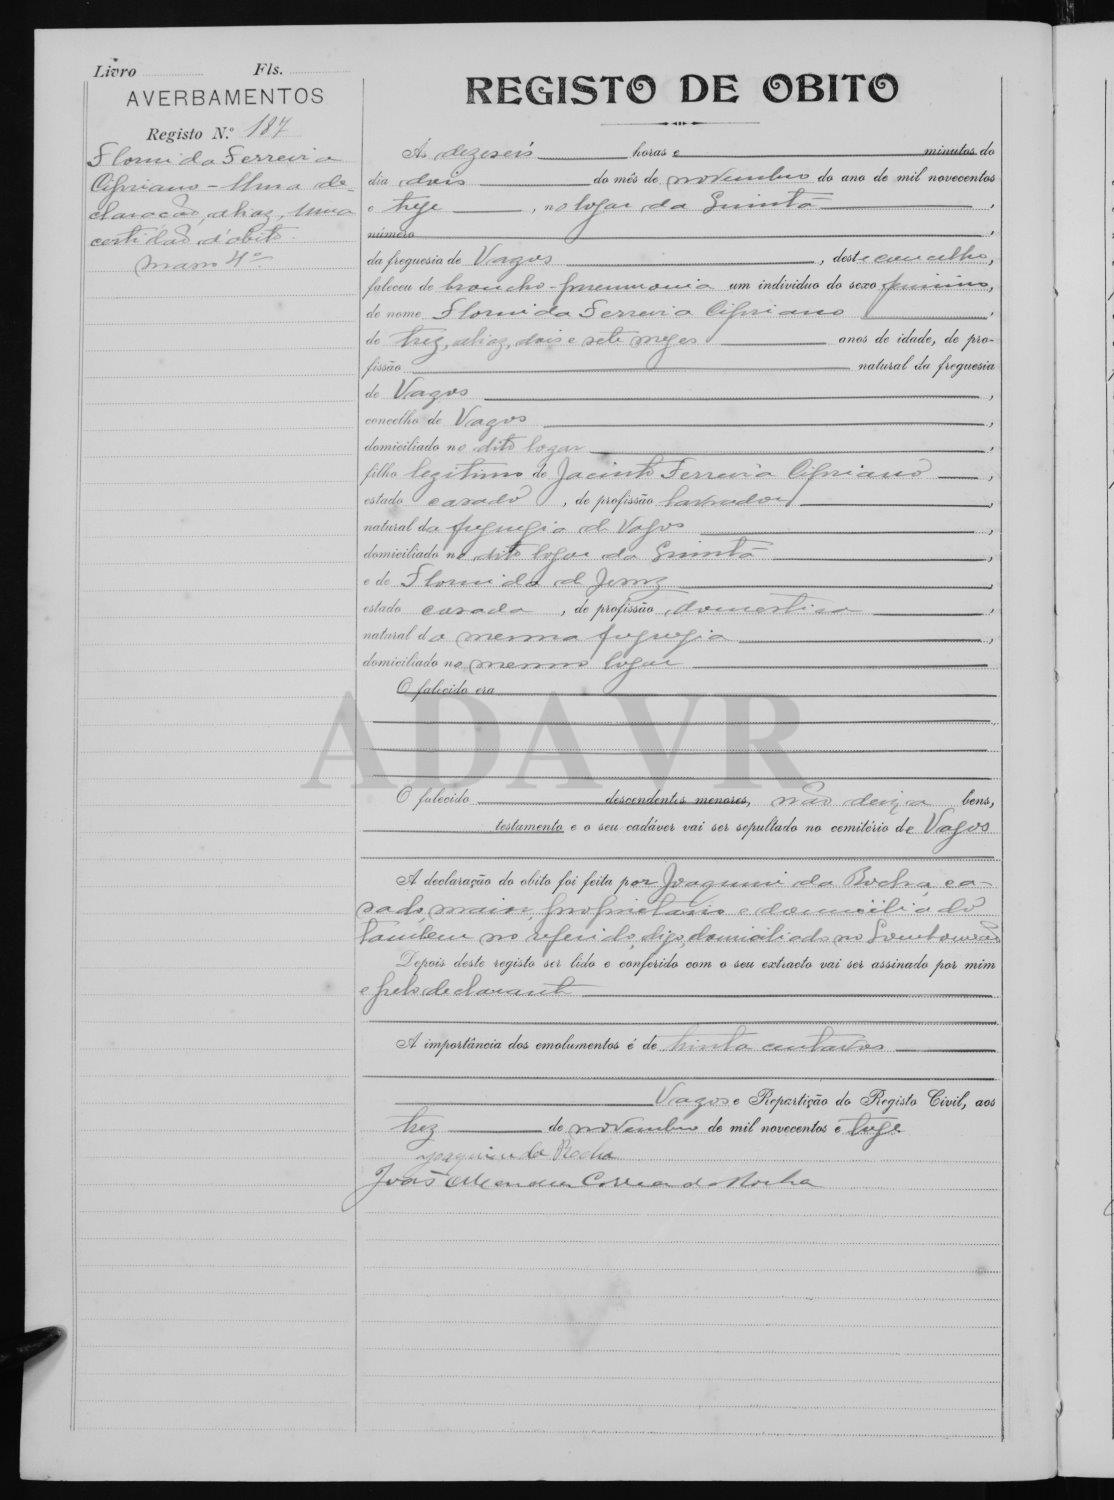 Livro Fls.
AVERBAMENTOS
Registo N.º 187
Florinda Ferreira
Cipriano - Uma de-
claração, aliaz, uma
certidão d'obito.
Maço 4º
REGISTO DE OBITO
Ás dezeseis horas e minutos do
dia dois do mês de novembro do ano de mil novecentos
e treze, no logar da Quintã,
número,
da freguesia de Vagos, deste concelho,
faleceu de broncho-pneumonia um individuo do sexo feminino,
de nome Florinda Ferreira Cipriano,
de trez, aliaz, dois e sete mezes anos de idade, de pro-
fissão natural da freguesia
de Vagos,
concelho de Vagos,
domiciliado no dito logar,
filho legitimo de Jacinto Ferreira Cipriano,
estado casado, de profissão lavrador,
natural da freguezia de Vagos,
domiciliado no dito logar da Quintã,
e de Florinda de Jezuz,
estado casada, de profissão domestica,
natural da mesma freguezia,
domiciliado no mesmo logar
O falecido era
ADAVR
O falecido descendentes menores, não deixa bens,
testamento e o seu cadáver vai ser sepultado no cemitério de Vagos
A declaração do obito foi feita por Joaquim da Rocha, ca-
sado, maior, proprietario e domiciliado
tambem no referido, digo, domiciliado no
Depois deste registo ser lido e conferido com o seu extracto vai ser assinado por mim
e pelo declarante
A importância dos emolumentos é de trinta centavos
Vagos e Repartição do Registo Civil, aos
trez de novembro de mil novecentos e treze
Joaquim da Rocha
João Mendes Correia da Rocha